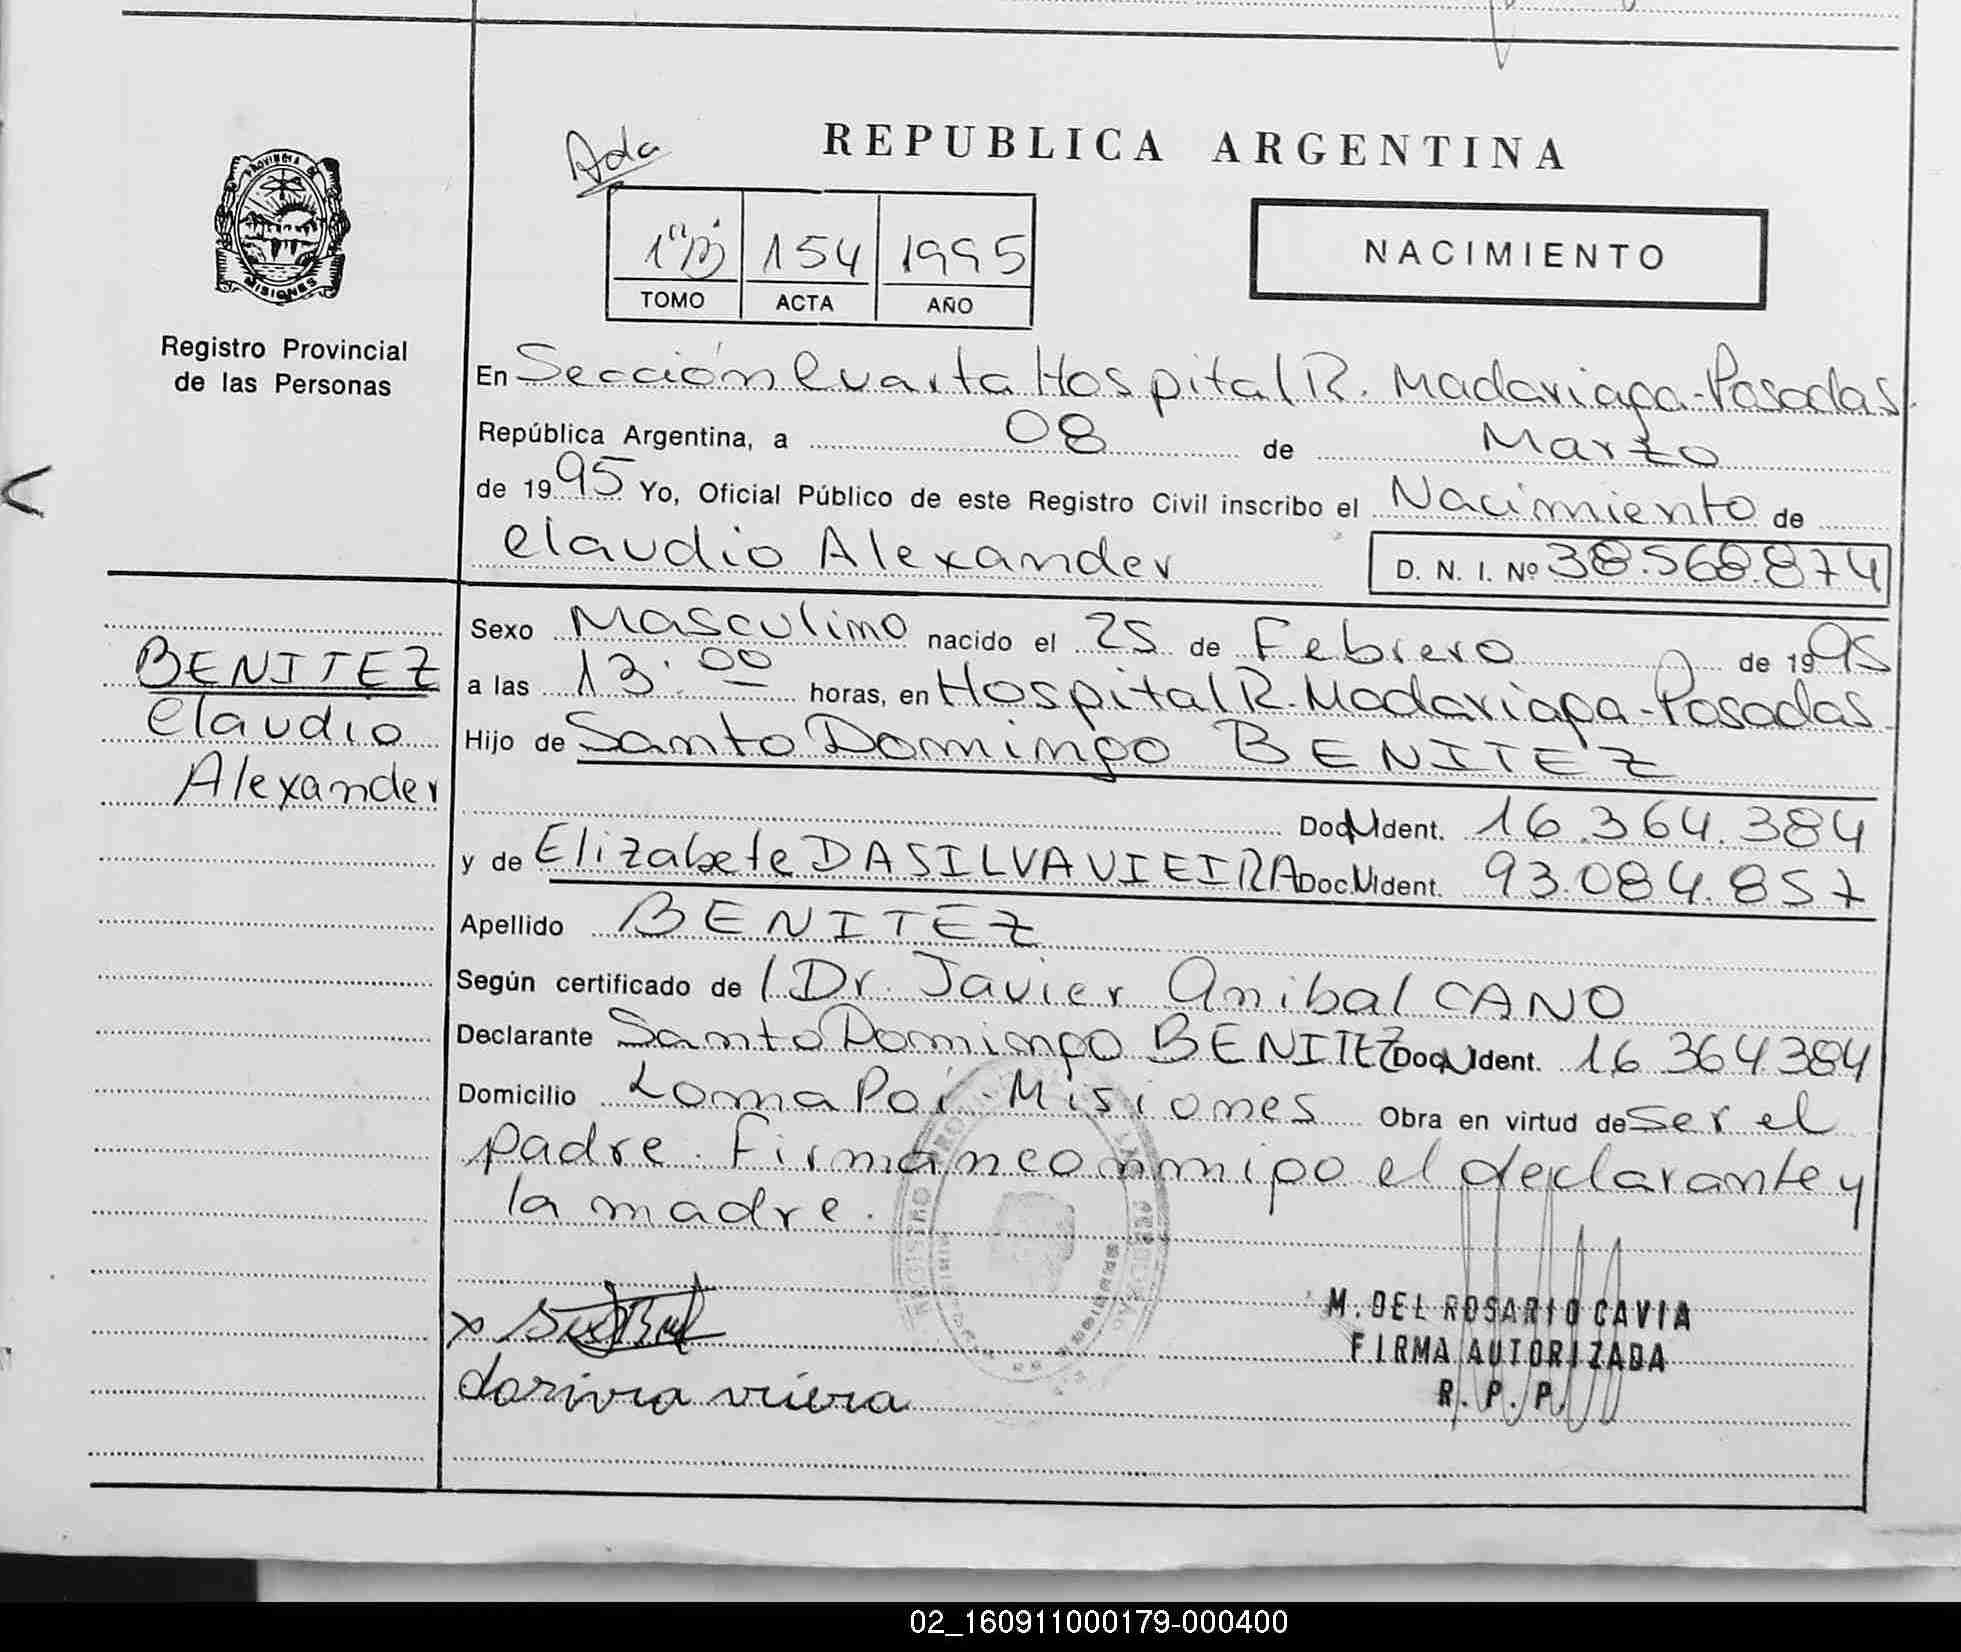 REPUBLICA ARGENTINA
Ada
1"B 154 1995
TOMO ACTA AÑO
NACIMIENTO
PROVINCIA DE MISIONES
Registro Provincial
de las Personas
En Sección Cuarta Hospital R. Madariaga-Posadas.
República Argentina, a 08 de Marzo
de 1995 Yo, Oficial Público de este Registro Civil inscribo el Nacimiento de
Claudio Alexander D. N. I. Nº 38.568.874
Sexo Masculino nacido el 25 de Febrero de 1995
a las 13.00 horas, en Hospital R. Madariaga-Posadas.
Hijo de Santo Domingo BENITEZ
Doc. Ident. 16.364.384
y de Elizabete DA SILVA VIEIRA Doc. Ident. 93.084.857
Apellido BENITEZ
Según certificado de l Dr. Javier Anibal CANO
Declarante Santo Domingo BENITEZ Doc. Ident. 16 364 384
Domicilio Loma Poi - Misiones Obra en virtud de ser el
padre. Firman conmigo el declarante y
la madre.
BENITEZ
Claudio
Alexander
M. DEL ROSARIO CAVIA
FIRMA AUTORIZADA
R. P. P.
x
02_160911000179-000400